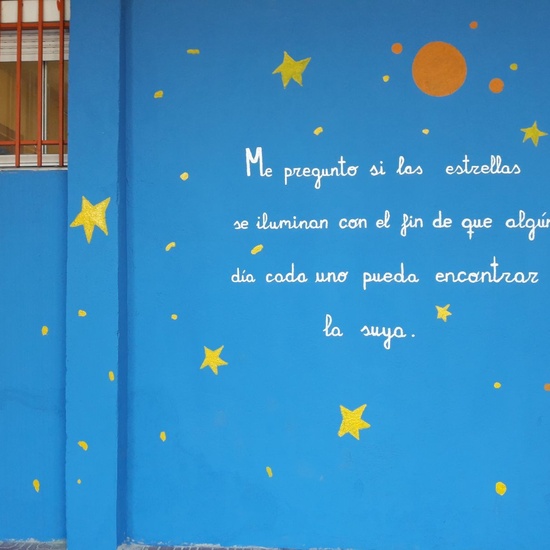 Me pregunto si las estrellas
se iluminan con el fin de que algún
día cada uno pueda encontrar
la suya.